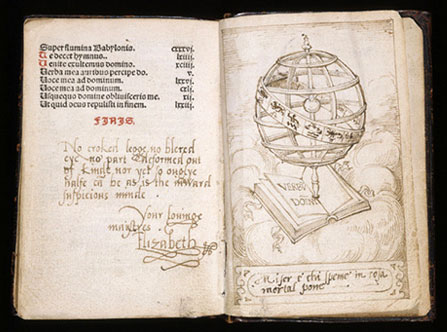 Super flumina Babylonis. cxxxvj.
Te decet hymnus. lxiiij.
Venite exultemus domino. xciiij.
Verba mea auribus percipe do. v.
Voce mea ad dominum. lxxvj.
Voce mea ad dominum. cxlj.
Usquequo domine obliuisceris me. xij.
Ut quid deus repulisti in finem. lxxiij.
FINIS.
No croked legge, no blered
eye, no part deformed out
of kinde, nor yet so ouglye
halfe cā be as is the inward
suspicious minde
Your lovinge
maistres
Elizabeth R
VERBV̄
DOMI
Miser è chi speme in cosa
mortal pone